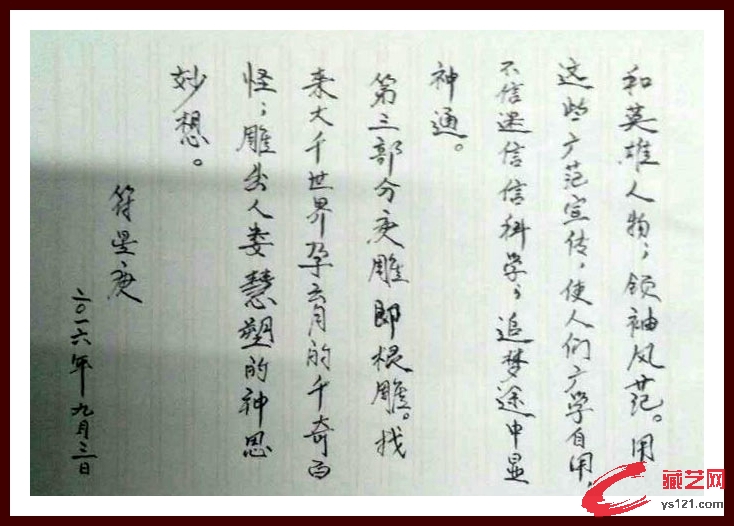 和英雄人物；领袖风范。用
这些广范宣传，使人们广学自用，
不信迷信信科学；追梦途中显
神通。
第三部分庚雕即根雕。找
来大千世界孕育的千奇百
怪；雕出人娄慧塑的神思
妙想。
符星庚
二〇一六年九月三日
藏艺网
ys121.com